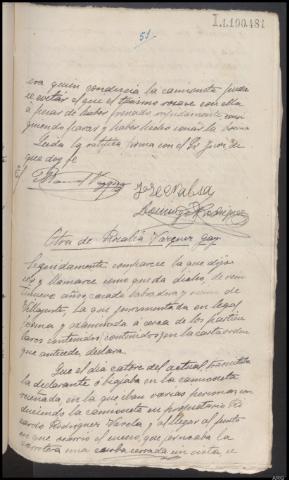 51
era quien conducia la camioneta pudo
evitar el que el mismo rozase con ella
a pesar de haber frenado rapidamente consi
guiendo parar y haber hecho sonar la bocina
Leida la ratifica firma con el Sr Juez de
que doy fe
José Nabia
Domingo Rodriguez
Otra de Rosalia Vazquez Gay
Seguidamente comparece la que dijo
ser y llamarse como queda dicho, de vein
tinueve años, casada labradora y vecina de
la que juramentada en legal
forma y examinada a cerca de los particu
lares contenidos en la carta orden
que antecede, declara.
Que el dia catorce del actual transitaba
la declarante ó bajaba en la camioneta
reseñada, en la que iban varias personas con
duciendo la camioneta su propietario Ri
cardo Rodriguez Varela y al llegar al punto
en que ocurrió el suceso, que formaba la
carretera una curba cerrada sin vista, se